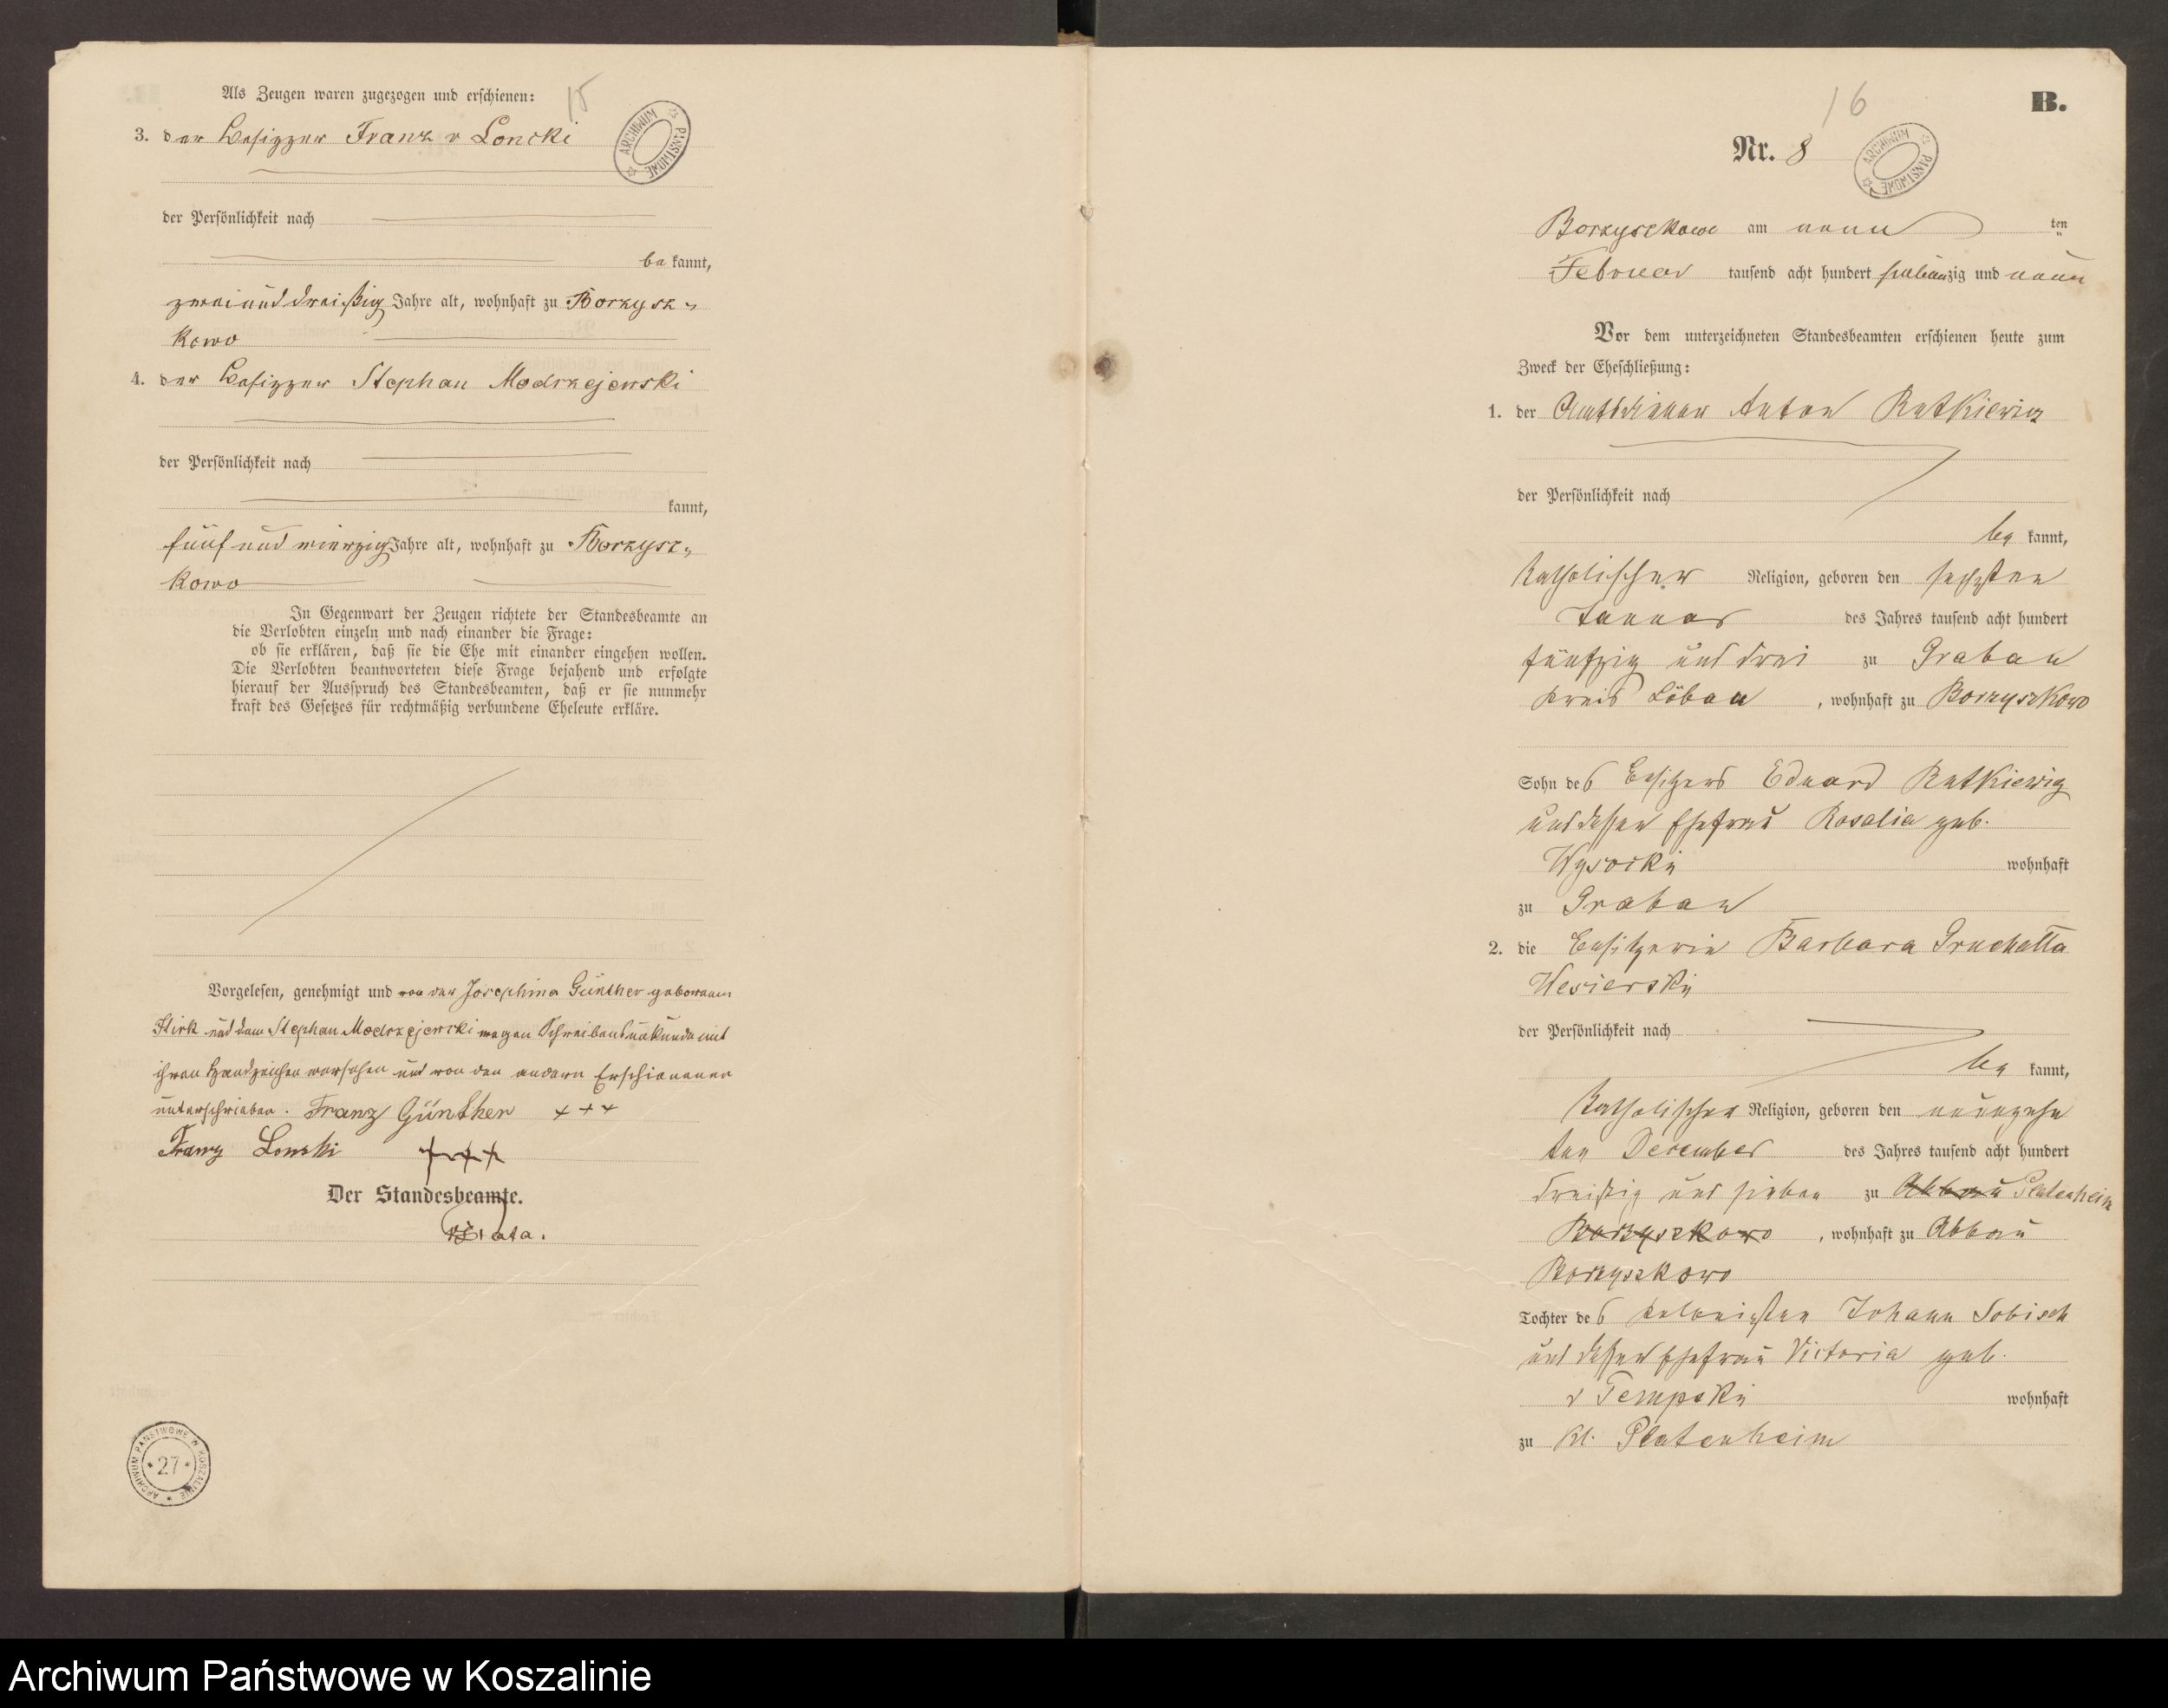 Als Zeugen waren zugezogen und erschienen:
15
3. der Besitzer Franz v Loncki
ARCHIWUM PAŃSTWOWE
der Persönlichkeit nach
be kannt,
zweiunddreißig Jahre alt, wohnhaft zu Borzysz-
kowo
4. der Besitzer Stephan Modrzejewski
der Persönlichkeit nach
kannt,
fünfundvierzig Jahre alt, wohnhaft zu Borzysz-
kowo
In Gegenwart der Zeugen richtete der Standesbeamte an
die Verlobten einzeln und nach einander die Frage:
ob sie erklären, daß sie die Ehe mit einander eingehen wollen.
Die Verlobten beantworteten diese Frage bejahend und erfolgte
hierauf der Ausspruch des Standesbeamten, daß er sie nunmehr
kraft des Gesetzes für rechtmäßig verbundene Eheleute erkläre.
Vorgelesen, genehmigt und von der Josephina Günther geborenen
und dem Stephan Modrzejewski wegen Schreibensunkunde mit
ihren Handzeichen versehen und von den andern Erschienenen
unterschrieben. Franz Günther +++
Franz Lonski +++
Der Standesbeamte.
ARCHIWUM PAŃSTWOWE W KOSZALINIE
27
16
B.
Nr. 8
ARCHIWUM PAŃSTWOWE
Borzyszkowo am neun ten
Februar tausend acht hundert siebenzig und neun
Vor dem unterzeichneten Standesbeamten erschienen heute zum
Zweck der Eheschließung:
1. der Amtsdiener Anton Rutkiewicz
der Persönlichkeit nach
be kannt,
katholischer Religion, geboren den sechsten
Januar des Jahres tausend acht hundert
fünfzig und drei zu Grabau
Kreis Löbau, wohnhaft zu Borzyszkowo
Sohn des Besitzers Eduard Rutkiewicz
und dessen Ehefrau Rosalia geb.
Wysocki wohnhaft
zu Grabau
2. die Besitzerin Barbara Gruchatta
Wesierski
der Persönlichkeit nach
be kannt,
katholischer Religion, geboren den neunzehn
ten December des Jahres tausend acht hundert
dreißig und sieben zu Abbau Platenheim
Borzyszkowo, wohnhaft zu Abbau
Borzyszkowo
Tochter des Kolonisten Johann Sobisch
und dessen Ehefrau Victoria geb.
v Tempski wohnhaft
zu Kl. Platenheim
Archiwum Państwowe w Koszalinie